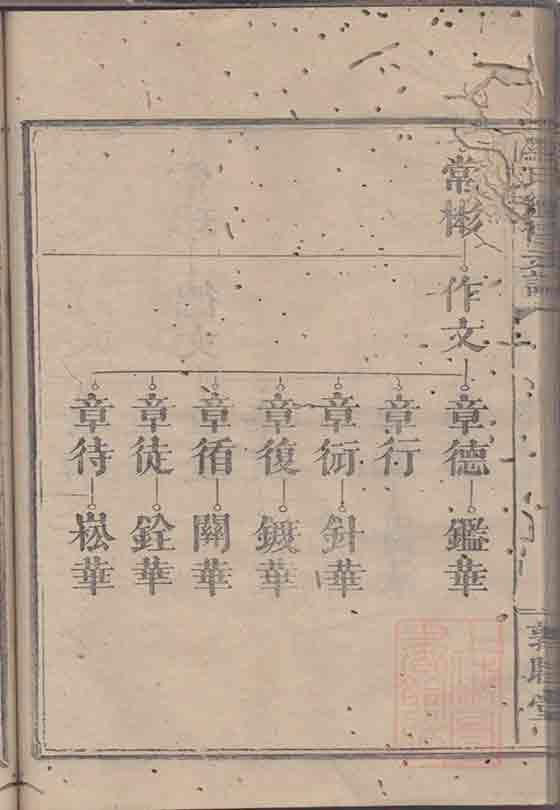 常彬
作文
章德
鑑華
章行
章衍
針華
章復
鍍華
章循
關華
章徒
銓華
章待
崧華
敦睦堂